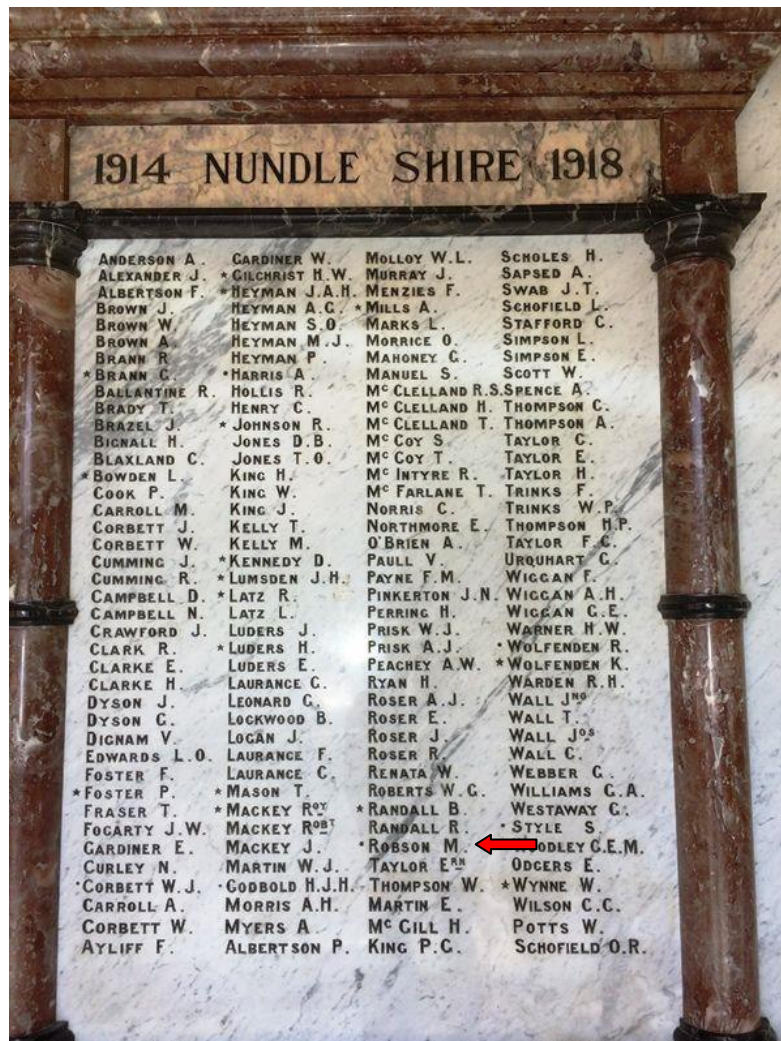 1914 NUNDLE SHIRE 1918
ANDERSON A.
ALEXANDER J.
ALBERTSON F.
BROWN J.
BROWN W.
BROWN A.
BRANN R
*BRANN G.
BALLANTINE R.
BRADY T.
BRAZEL J.
BIGNALL H.
BLAXLAND C.
*BOWDEN L.
COOK P.
CARROLL M.
CORBETT J.
CORBETT W.
CUMMING J.
CUMMING R.
CAMPBELL D.
CAMPBELL N.
CRAWFORD J.
CLARK R.
CLARKE E.
CLARKE H.
DYSON J.
DYSON G.
DIGNAM V.
EDWARDS L.O.
FOSTER F.
*FOSTER P.
FRASER T.
FOGARTY J.W.
GARDINER E.
CURLEY N.
·CORBETT W.J.
CARROLL A.
CORBETT W.
AYLIFF F.
GARDINER W.
*GILCHRIST H.W.
*HEYMAN J.A.H.
HEYMAN A.G.
HEYMAN S.O.
HEYMAN M.J.
HEYMAN P.
·HARRIS A.
HOLLIS R.
HENRY C.
*JOHNSON R.
JONES D.B.
JONES T.O.
KING H.
KING W.
KING J.
KELLY T.
KELLY M.
*KENNEDY D.
*LUMSDEN J.H.
*LATZ R.
LATZ L.
LUDERS J.
*LUDERS H.
LUDERS E.
LAURANCE G.
LEONARD G.
LOCKWOOD B.
LOGAN J.
LAURANCE F.
LAURANCE C.
*MASON T.
*MACKEY ROY
MACKEY ROBT
MACKEY J.
MARTIN W.J.
·GODBOLD H.J.H.
MORRIS A.H.
MYERS A.
ALBERTSON P.
MOLLOY W.L.
MURRAY J.
MENZIES F.
*MILLS A.
MARKS L.
MORRICE O.
MAHONEY G.
MANUEL S.
McCLELLAND R.S.
McCLELLAND H.
McCLELLAND T.
McCOY S.
McCOY T.
McINTYRE R.
McFARLANE T.
NORRIS C.
NORTHMORE E.
O'BRIEN A.
PAULL V.
PAYNE F.M.
PINKERTON J.N.
PERRING H.
PRISK W.J.
PRISK A.J.
PEACHEY A.W.
RYAN H.
ROSER A.J.
ROSER E.
ROSER J.
ROSER R.
RENATA W.
ROBERTS W.G.
*RANDALL B.
RANDALL R.
·ROBSON M.
TAYLOR ERN
·THOMPSON W.
MARTIN E.
McGILL H.
KING P.G.
SCHOLES H.
SAPSED A.
SWAB J.T.
SCHOFIELD L.
STAFFORD C.
SIMPSON L.
SIMPSON E.
SCOTT W.
SPENCE A.
THOMPSON C.
THOMPSON A.
TAYLOR G.
TAYLOR E.
TAYLOR H.
TRINKS F.
TRINKS W.P.
THOMPSON H.P.
TAYLOR F.G.
URQUHART G.
WIGGAN F.
WIGGAN A.H.
WIGGAN G.E.
WARNER H.W.
·WOLFENDEN R.
*WOLFENDEN K.
WARDEN R.H.
WALL JNO
WALL T.
WALL JOS
WALL C.
WEBBER G.
WILLIAMS G.A.
WESTAWAY G.
·STYLE S.
G.E.M.
ODGERS E.
*WYNNE W.
WILSON C.C.
POTTS W.
SCHOFIELD O.R.